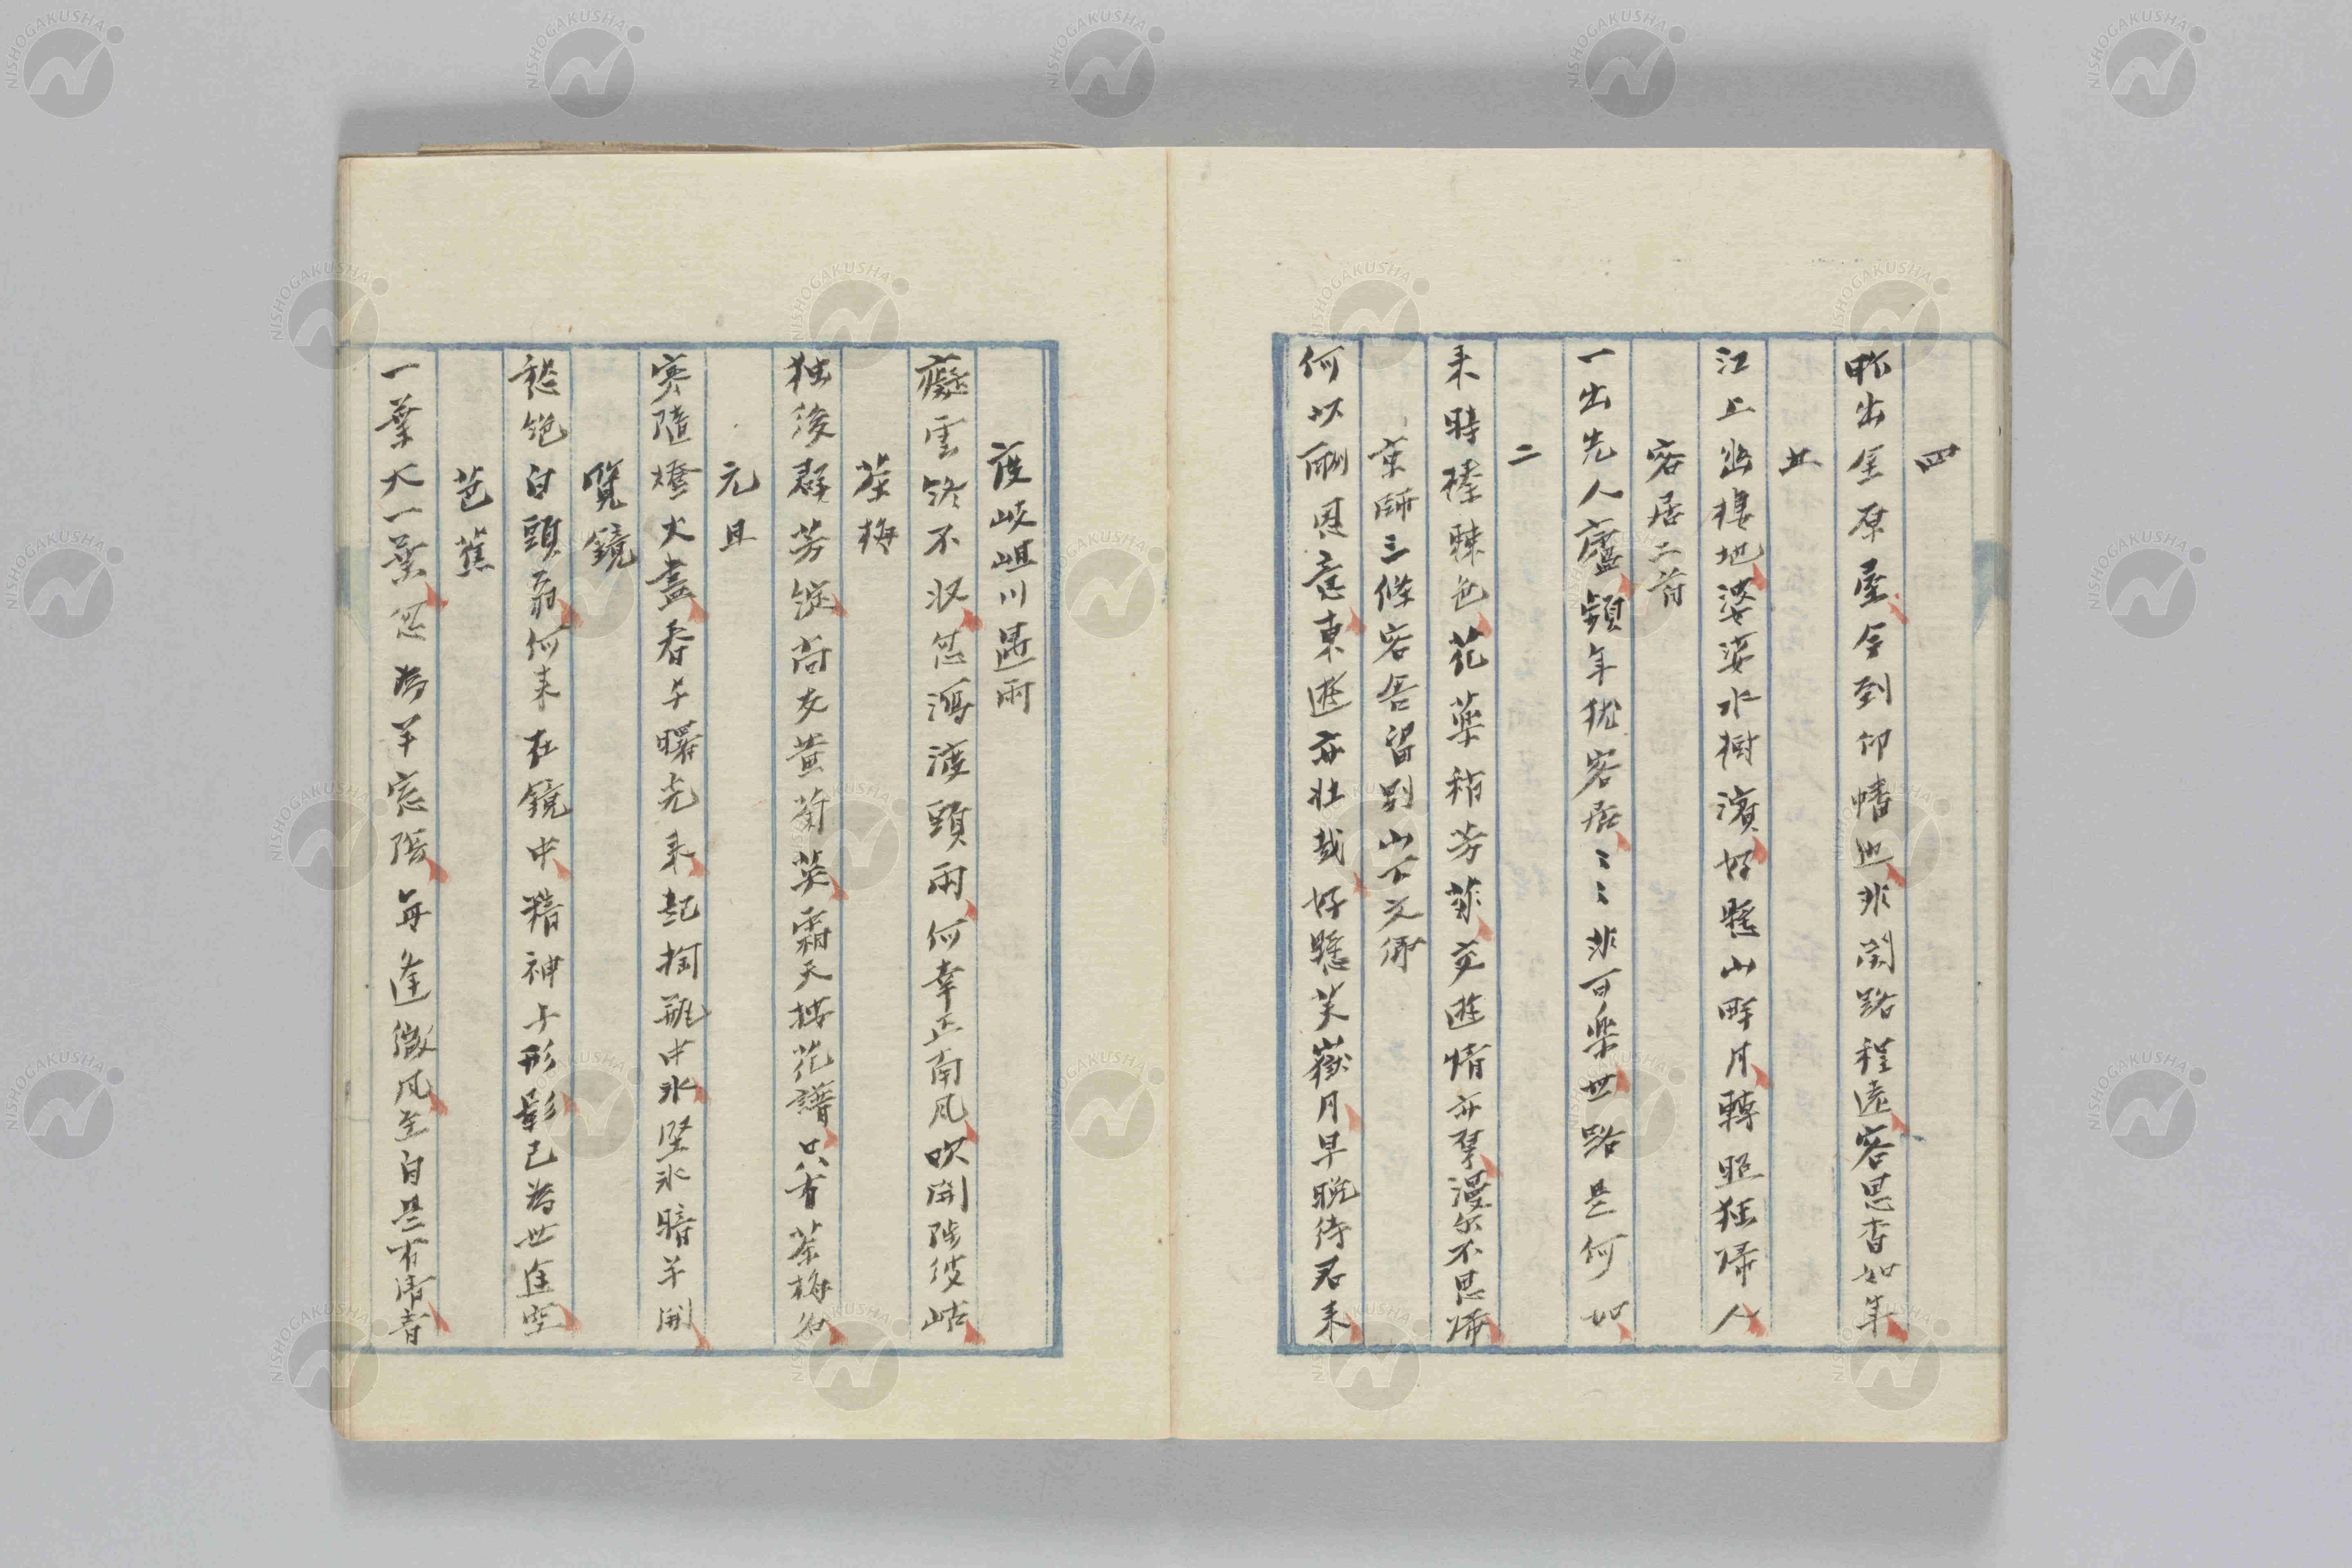 四
昨出金原屋今到印幡辺非関路程遠客思杳如年
五
江上幽棲地婆娑水樹濱好懸山畔月轉照独帰人
客居二首
一出先人廬頻年犹客居〻〻非可楽世路是何如
二
来時榛棘色花薬稍芳菲交遊情亦厚漫尓不思帰
京師三條客舎留別山下文卿
何以酬恩意東遊亦壮哉好懸芙嶽月早晩待君来
渡岐岨川遇雨
癡雲終不収忽濕渡頭雨何幸正南風吹開陟彼岵
茶梅
独後群芳綻尚友黄菊英霜天挍花譜只有茶梅名
元旦
寒隨燈火盡春与曙光来起掬瓶中氷堅氷暗羊開
覧鏡
愁絶白頭翁何来在鏡中精神与形影已為世途空
芭蕉
一葉大一葉忽為半窓陰毎逢微風至自是有清音